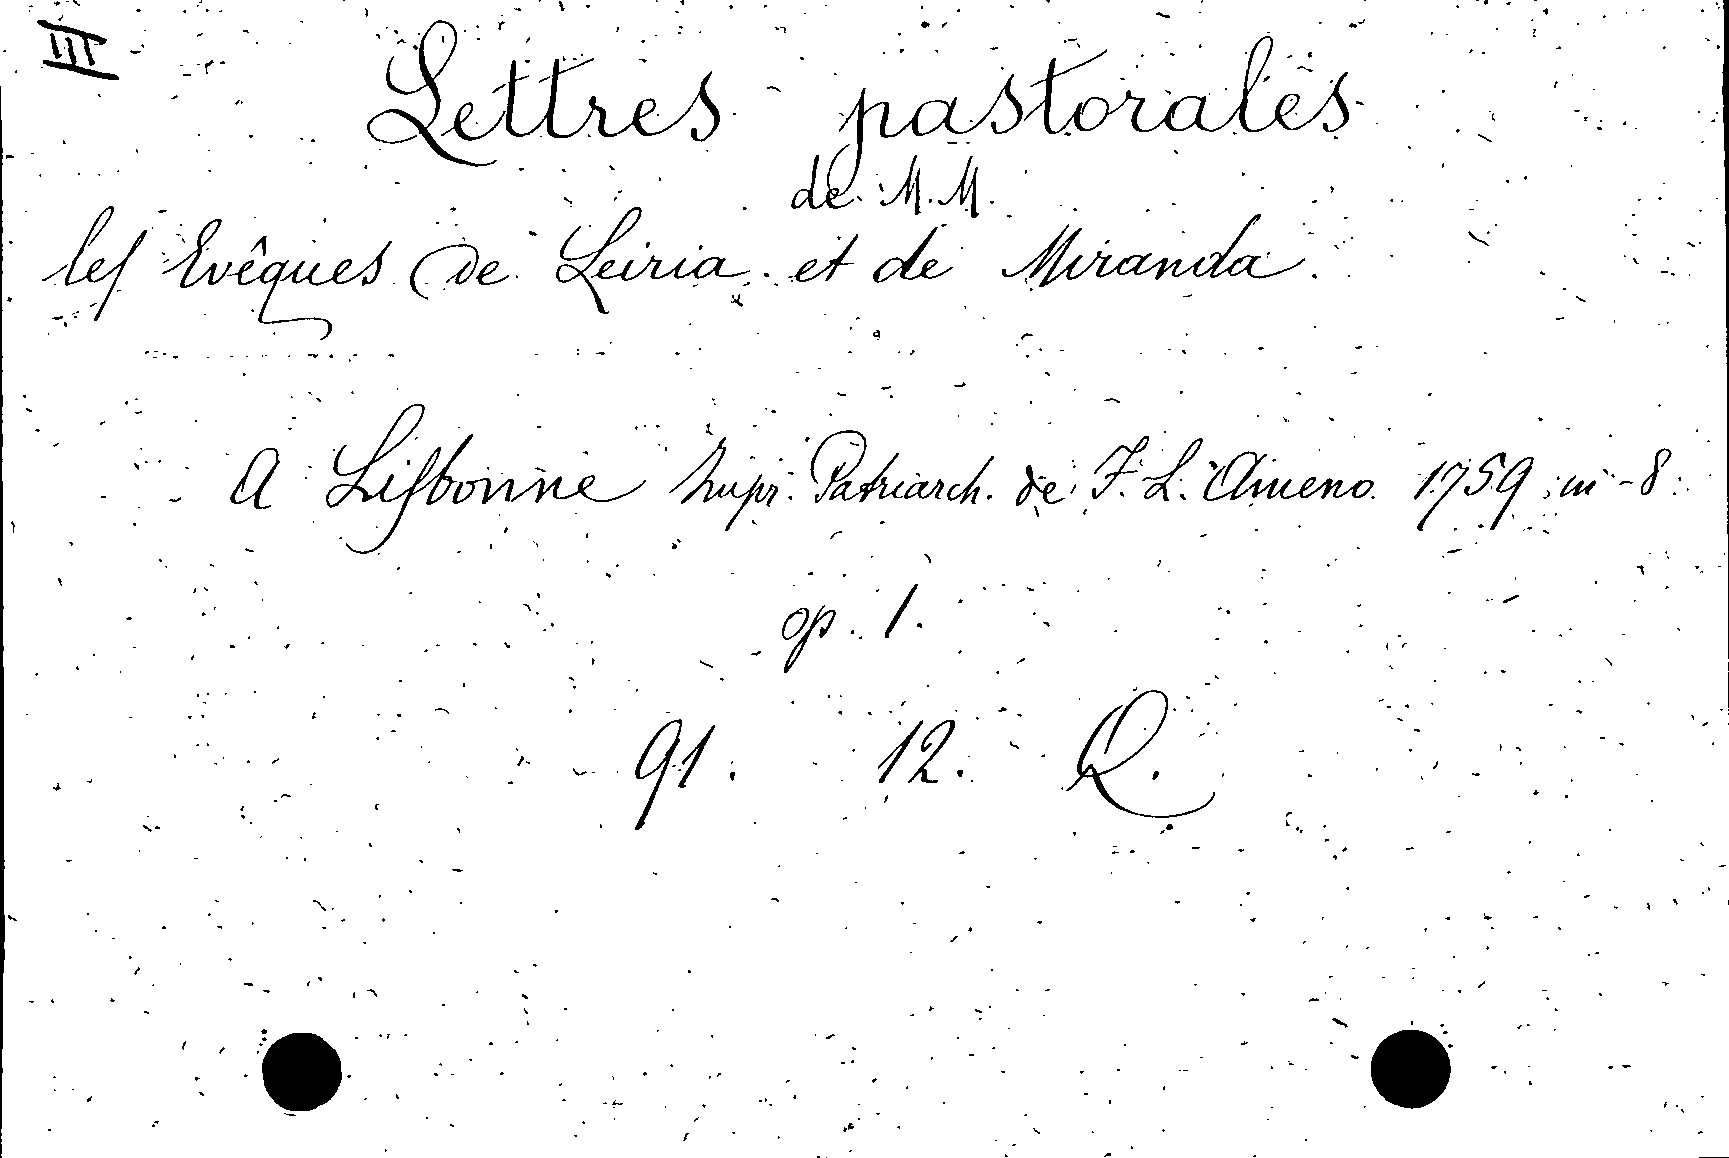 III
Lettres pastorales
de M.M.
les Evêques de Leiria et de Miranda.
A Lisbonne Impr. Patriarch. de F. L. Ameno 1759 in-8.
op. 1.
91. 12. Q.